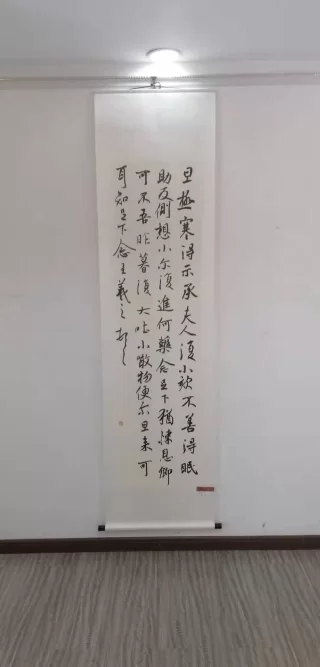 旦极寒得示承夫人复小欬不善得眠
助反侧想小尔复进何药念足下犹悚息卿
可不吾昨暮复大吐小散物便尔旦来可
耳知足下念王羲之顿首